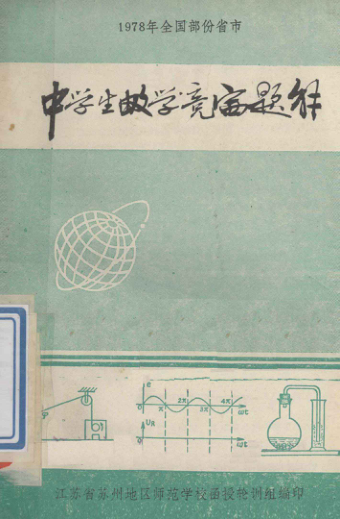 1978年全国部份省市
中学生数学竞赛题解
e
π
2π
3π
4π
ωt
0
ωt
江苏省苏州地区师范学校函授轮训组编印